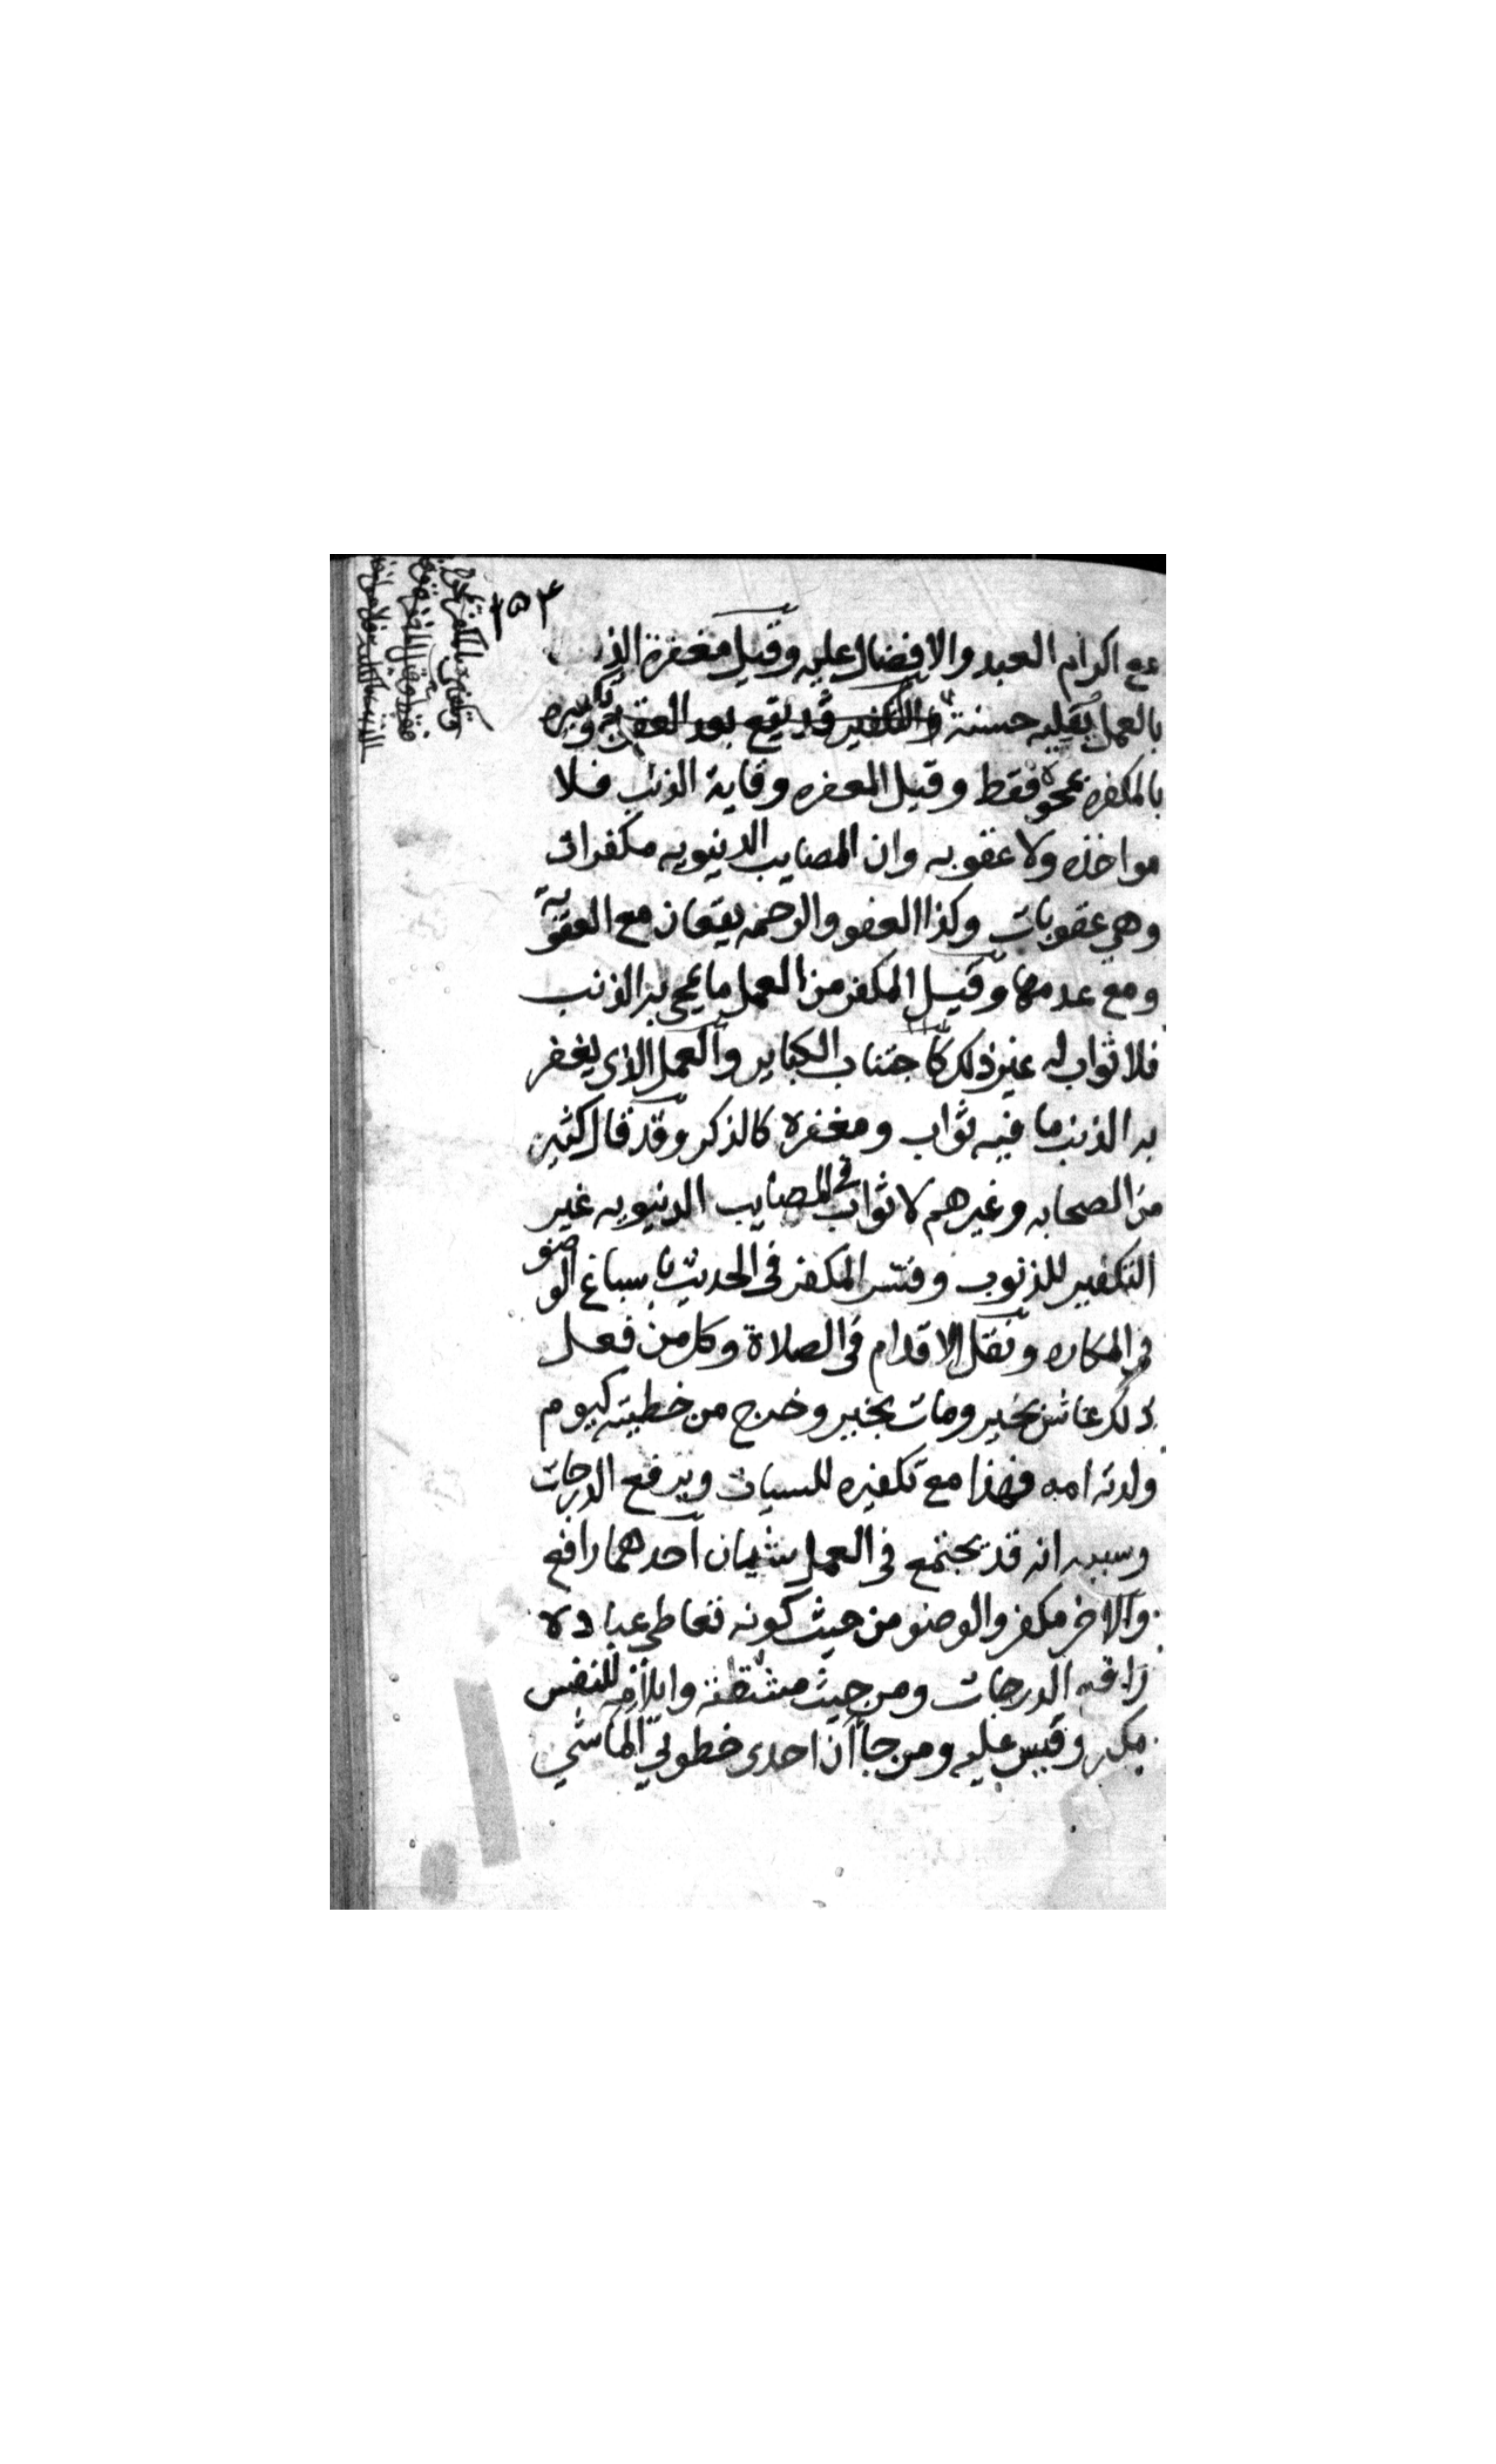 ١٥٣
مع اكرام العبد والافضال عليه وقيل مغفرة الذنب
بالعمل بقلبه حسنة والتكفير قد يقع بعد العقوبة وتكفيره
بالمكفره محوه فقط وقيل المعفره وقاية الذنب فلا
مواخذه ولا عقوبه وان المصايب الدنيويه مكفرات
وهي عقوبات وكذا العفو والرحمه يقعان مع العقوبة
ومع عدمها وقيل المكفر من العمل ما يمحى به الذنب
فلا ثواب له غير ذلك كاجتناب الكباير والعمل الذي يغفر
به الذنب ما فيه ثواب ومغفره كالذكر وقد قال كثير
من الصحابه وغيرهم لا ثواب في المصايب الدنيويه غير
التكفير للذنوب وفسر المكفر في الحديث باسباغ الوضو
في المكاره ونقل الاقدام في الصلاة وكل من فعل
ذلك عاش بخير ومات بخير وخرج من خطيته كيوم
ولدته امه فهذا مع تكفيره للسيات ويرفع الدرجات
وسببه انه قد يجتمع في العمل شيان احدهما رافع
والاخر مكفر والوضو من حيث كونه تعاطي عباده
رافع الدرجات ومن حيث مشقته وايلامه للنفس
مكفر وقيس عليه ومن جا ان احدى خطوتي الماشي